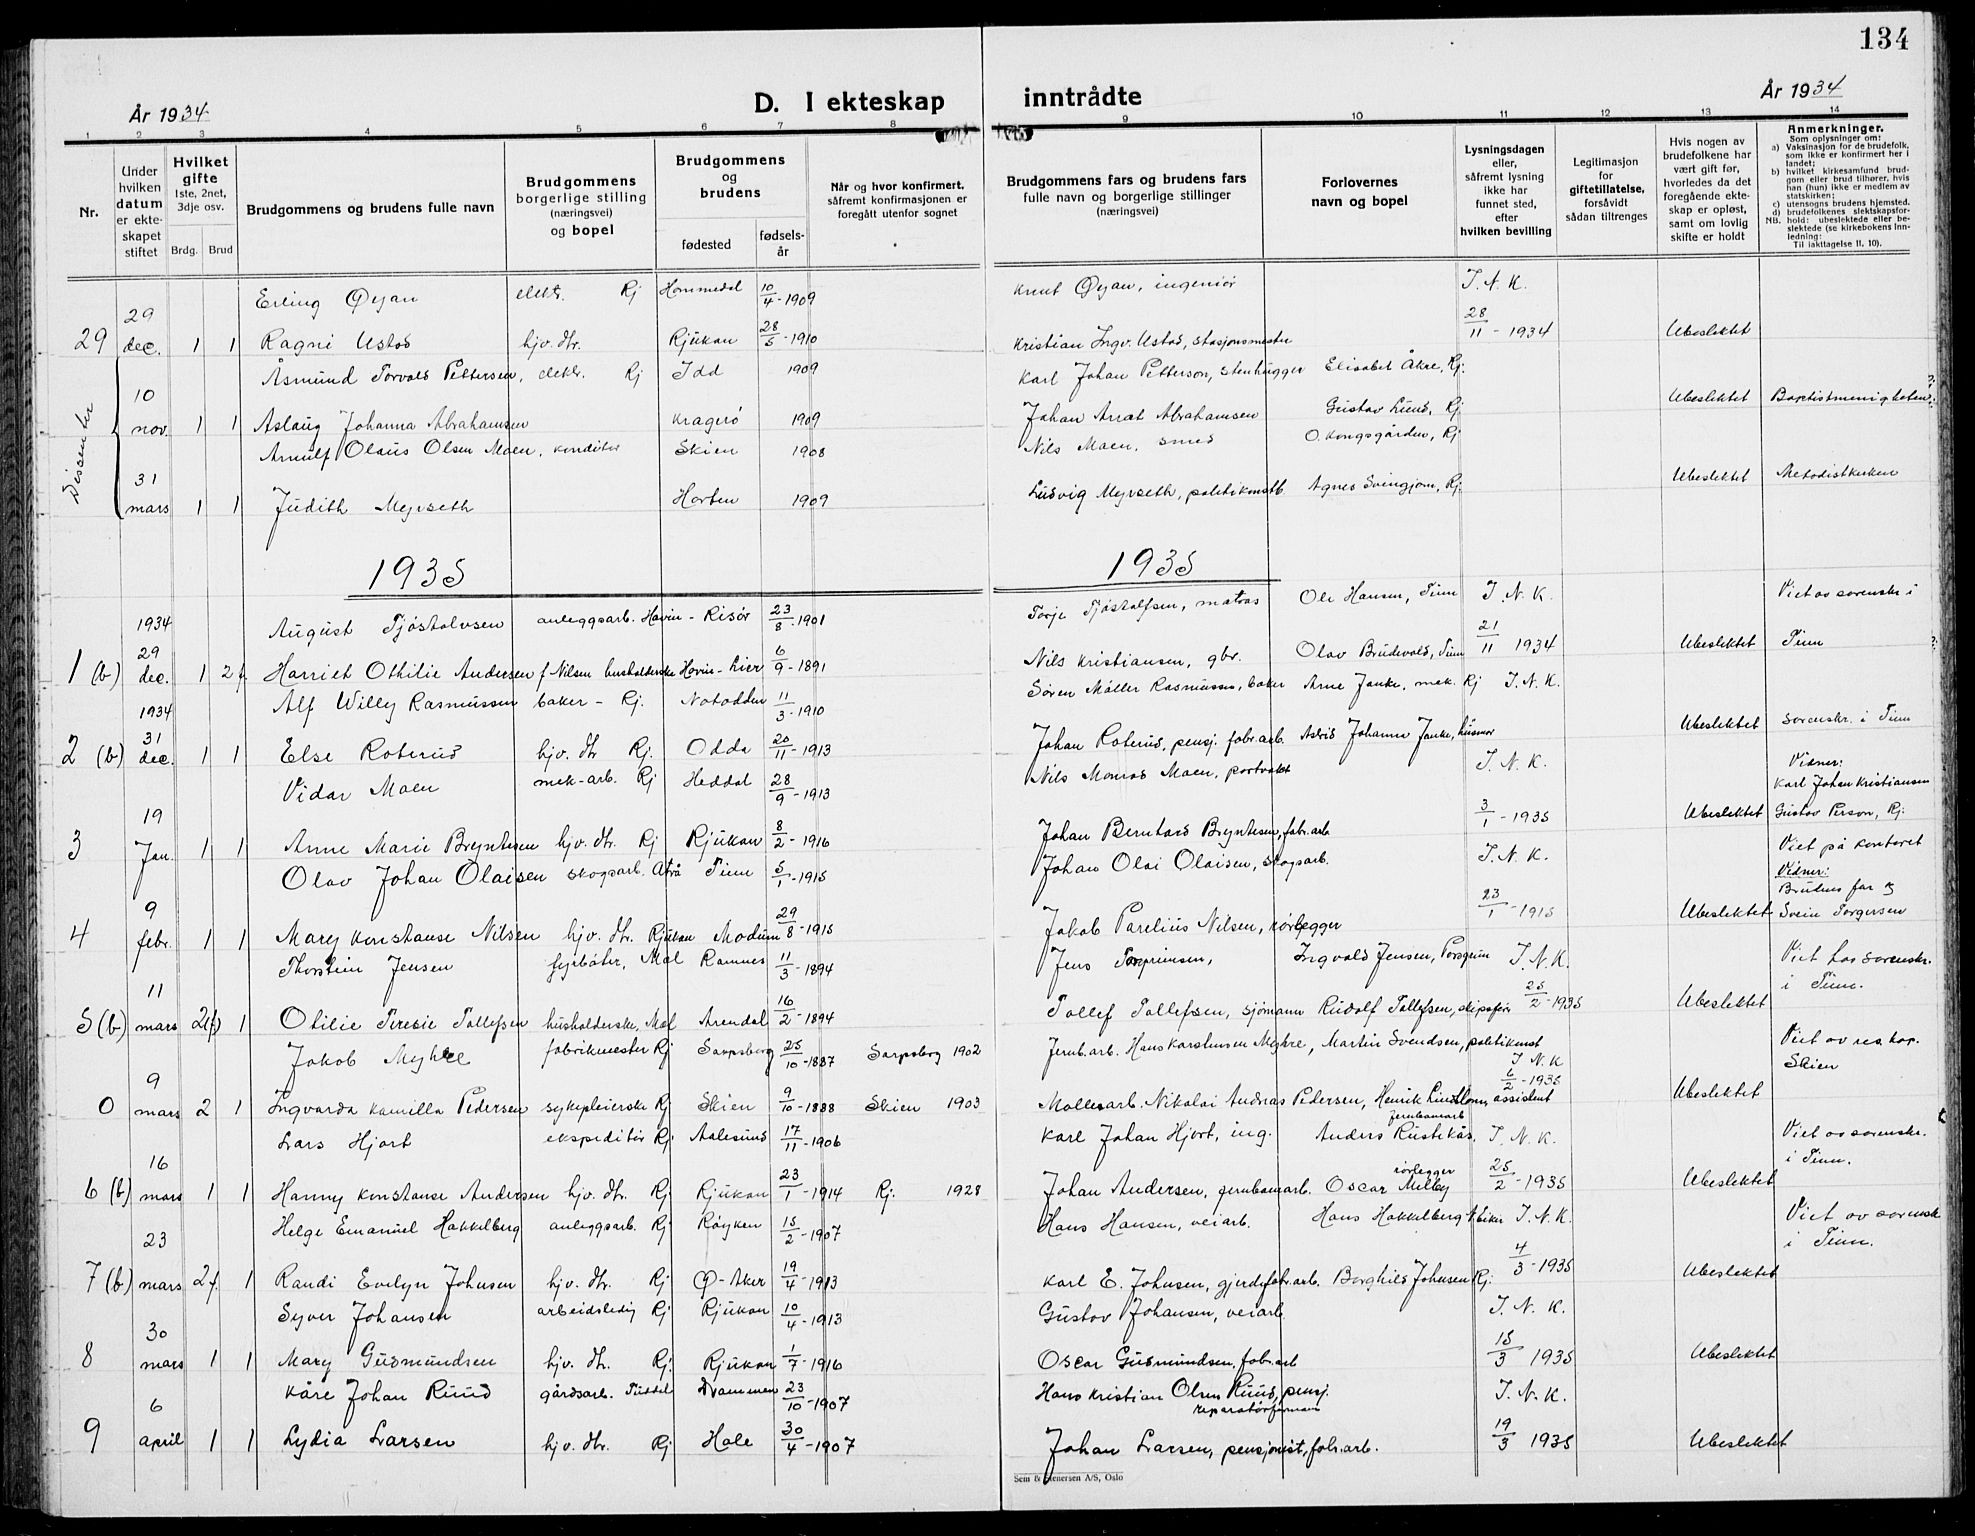 134
År 1934
D. I ekteskap inntrådte
År 1934
1 2 3 4 5 6 7 8 9 10 11 12 13 14
Nr.
Under hvilken datum er ekteskapet stiftet
Hvilket gifte 1ste, 2net, 3dje osv.
Brdg. Brud
Brudgommens og brudens fulle navn
Brudgommens borgerlige stilling (næringsvei) og bopel
Brudgommens og brudens
fødested
fødselsår
Når og hvor konfirmert, såfremt konfirmasjonen er foregått utenfor sognet
Brudgommens fars og brudens fars fulle navn og borgerlige stillinger (næringsvei)
Forlovernes navn og bopel
Lysningsdagen eller, såfremt lysning ikke har funnet sted, efter hvilken bevilling
Legitimasjon for giftetillatelse, forsåvidt sådan tiltrenges
Hvis nogen av brudefolkene har vært gift før, hvorledes da det foregående ekteskap er opløst, samt om lovlig skifte er holdt
Anmerkninger.
Som oplysninger om:
a) Vaksinasjon for de brudefolk, som ikke er konfirmert her i landet;
b) hvilket kirkesamfund brudgom eller brud tilhører, hvis han (hun) ikke er medlem av statskirken;
c) utensogns brudens hjemsted.
d) brudefolkenes slektskapsforhold: ubeslektede eller beslektede (se kirkebokens innledning:
NB. Til iakttagelse II, 10).
Erling Øyan elektr. Rj Hommedal 10/4-1909 Knut Øyan, ingeniør I. N. K.
29 29 dec. 1 1 Ragni Ustad hjv. dtr. Rjukan 28/5-1910 Kristian Ingv. Ustad, stasjonsmester 28/11-1934 Ubeslektet
Dissenter
Åsmund Torvald Pettersen, elektr. Rj Idd 1909 Karl Johan Petterson, stenhugger Elisabet Åkre, Rj.
10 nov. 1 1 Aslaug Johanna Abrahamsen Kragerø 1909 Johan Arnt Abrahamsen Gustav Lund, Rj Ubeslektet Baptistmenigheten?
Arnulf Olaus Olsen Moen, konditor Skien 1908 Nils Moen, smed O. Kongsgården, Rj
31 mars 1 1 Judith Myrseth Horten 1909 Ludvig Myrseth, politikonstb. Agnes Svingjom, Rj. Ubeslektet Metodistkirken
1935 1935
August Tjøstolvsen anleggsarb. Hovin - Risør 23/8-1901 Torje Tjøstolfsen, matros Ole Hansen, Tinn I. N. K. Viet av sorenskr. i
1 (b) 1934 29 dec. 1 2 f. Harriet Othilie Andersen f. Nilsen husholderske Hovin - Lier 6/9-1891 Nils Kristiansen, gbr. Olav Brudevold, Tinn 21/11 1934 Ubeslektet Tinn
Alf Willy Rasmussen baker - Rj. Notodden 11/3-1910 Søren Møller Rasmussen, baker Arne Janke, mek. Rj I. N. K.
2 (b) 1934 31 dec. 1 1 Else Roterud hjv. dtr Rj. Odda 20/11-1913 Johan Roterud, pensj. fabr.arb. Astrid Johanne Janke, husmor Ubeslektet sorenskr. i Tinn
Vidar Moen mek-arb. Rj Heddal 28/9-1913 Nils Monrad Moen, portvakt I. N. K. Vidner: Karl Johan Kristiansen
3 19 Jan. 1 1 Anne Marie Bryntesen hjv. dtr. Rj Rjukan 8/2-1916 Johan Bernhard Bryntesen, fabr.arb 3/1-1935 Ubeslektet Gustav Person, Rj.
Olav Johan Olaisen skogsarb. Atrå Tinn 5/1-1915 Johan Olai Olaisen, skogsarb. I. N. K. Viet på kontoret Vidner: Brudens far og
4 9 febr. 1 1 Mary Konstanse Nilsen hjv. dtr. Rjukan Modum 29/8-1915 Jakob Parelius Nilsen, rørlegger 23/1-1915 Ubeslektet Svein Torgersen
Thorstein Jensen fyrbøter, Mæl Ramnes 11/3-1894 Jens Ingvald Jensen, Porsgrunn I. N. K. Viet hos sorenskr. i Tinn.
5 (b) 11 mars 2(f) 1 Otilie Teresie Tollefsen husholderske, Mæl Arendal 16/2-1894 Tollef Tollefsen, sjømann Rudolf Tollefsen, skipsfører 25/2-1935 Ubeslektet
Jakob Myhre fabrikmester Rj Sarpsborg 25/10-1887 Sarpsborg 1902 Jernb.arb. Hans Karstensen Myhre, Martin Svendsen, politikonst I. N. K Viet av res. kap. Skien
0 9 mars 2 1 Ingvarda Kamilla Pedersen sykepleierske Rj Skien 9/10-1888 Skien 1903 Møllearb. Nikolai Andreas Pedersen, Henrik Lindblom, assistent 6/2-1935 Ubeslektet
Lars Hjort ekspeditør Rj. Aalesund 17/11-1906 Karl Johan Hjort, ing. Anders Rustekås, jernbanearb I. N. K. Viet av sorenskr. i Tinn.
6 (b) 16 mars 1 1 Hanny Konstanse Andersen hjv. dtr. Rj Rjukan 23/1-1914 Rj. 1928 Johan Andersen, jernbanearb. Oscar Melby rørlegger 25/2-1935 Ubeslektet
Helge Emanuel Hakkelberg anleggsarb. Rj Røyken 15/2-1907 Hans Hansen, veiarb. Hans Hakkelberg I. N. K. Viet av sorenskr i Tinn.
7 (b) 23 mars 2 f. 1 Randi Evelyn Johnsen hjv. dtr. Rj Ø-Aker 19/4-1913 Karl E. Johnsen, gjerdefabr.arb. Borghild Johnsen Rj. 4/3-1935 Ubeslektet
Syver Johansen arbeidsledig Rj Rjukan 10/4-1913 Gustav Johansen, veiarb. I. N. K.
8 30 mars 1 1 Mary Gudmundsen hjv. dtr. Rj. Rjukan 1/7-1916 Oscar Gudmundsen, fabr.arb 15/3 1935 Ubeslektet
Kåre Johan Ruud gårdsarb. Tuddal Drammen 23/10-1907 Hans Kristian Olsen Ruud, pensj. reparatørformann I. N. K.
9 6 april 1 1 Lydia Larsen hjv. dtr. Rj Hole 30/4-1907 Johan Larsen, pensjonist, fabr.arb. 19/3 1935 Ubeslektet
Sem & Stenersen A/S, Oslo